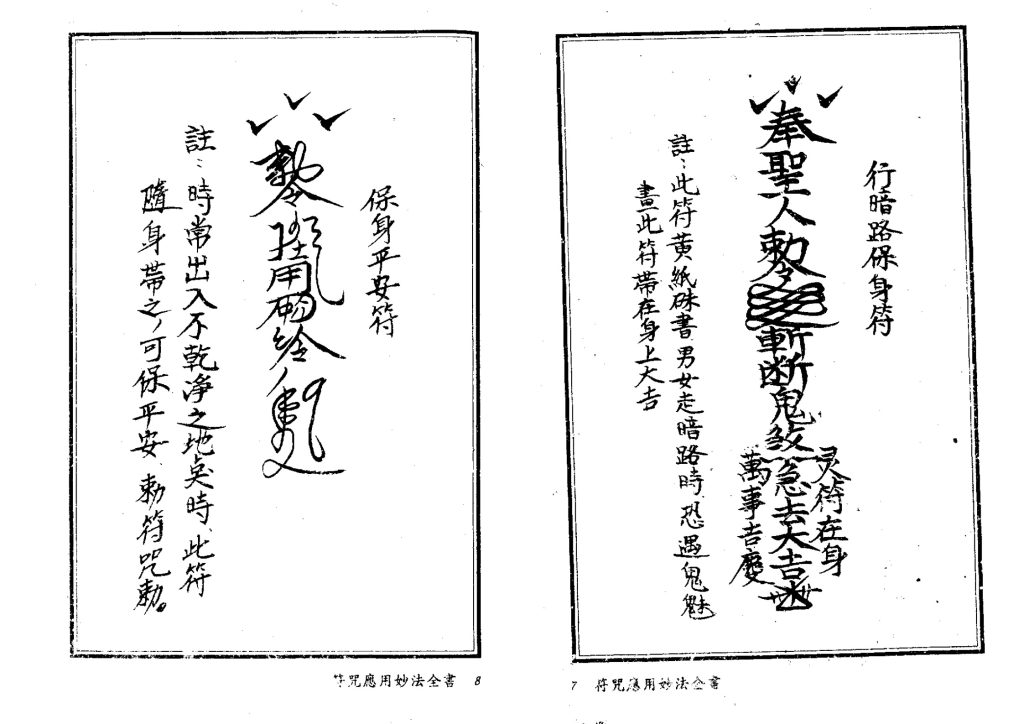 行暗路保身符
奉聖人勅令斬断鬼煞急去大吉
灵符在身
萬事吉慶
註：此符黄紙硃書男女走暗路時、恐遇鬼魅
畫此符帶在身上大吉
7 符咒應用妙法全書
保身平安符
註：時常出入不乾淨之地奌時、此符
隨身帶之，可保平安、勅符咒勅。
符咒應用妙法全書 8